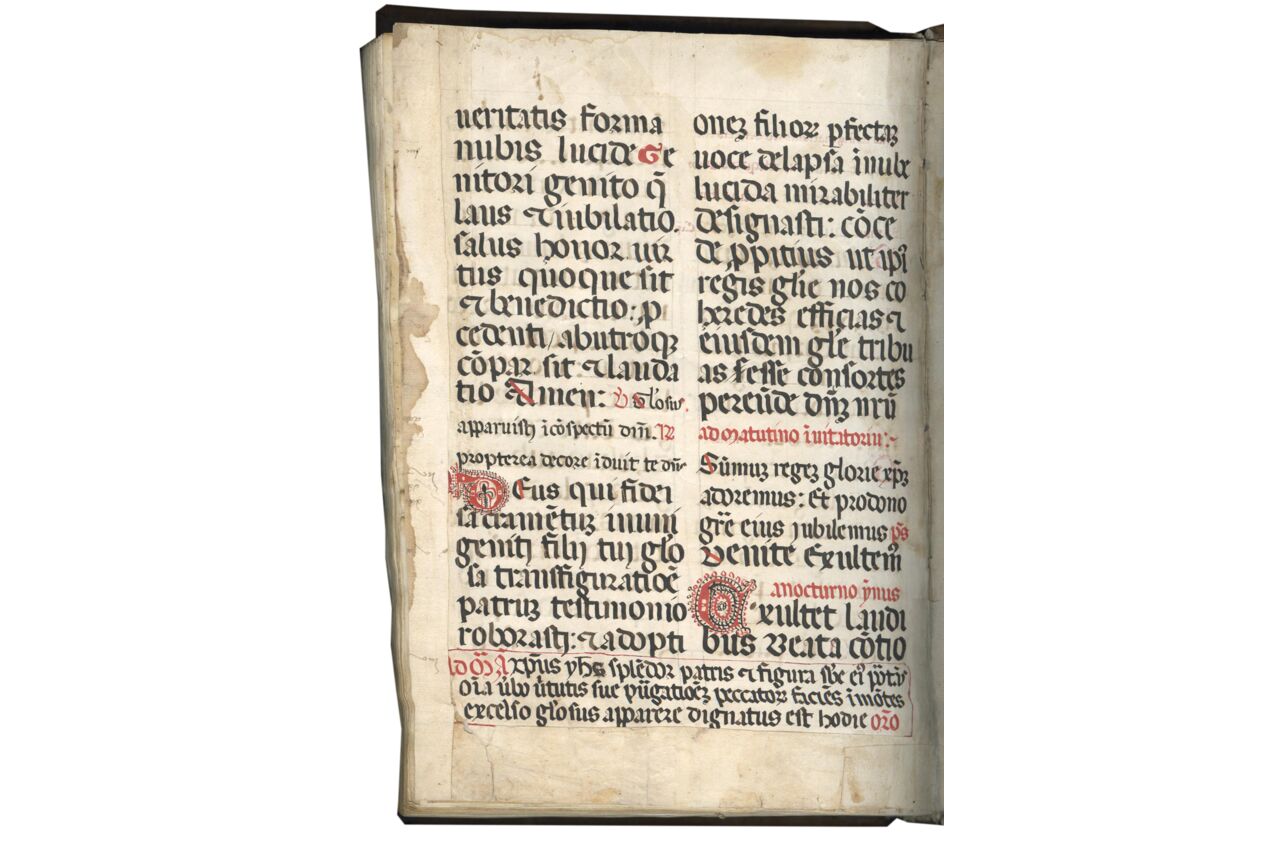 ueritatis forma
nubis lucide Ge
nitori genito q̄
laus ⁊ iubilatio.
salus honor uir
tus quoque sit
⁊ benedictio: ꝓ
cedenti abutroqꝫ
cōpar sit ⁊ lauda
tio Amen: ℣ Gl'osus.
apparuisti ī cōspectu dn̄i. ℟
propterea decore īduit te dn̄s
Deus qui fidei
sacramētuꝫ in uni
geniti filij tuj glo
sa transfiguratiōe
patruꝫ testimonio
roborasti: ⁊ adopti
oneꝫ filioꝝ ꝑfectaꝫ
uoce delapsa ī nube
lucida mirabiliter
designasti: cōce
de ꝓpitius ut ipi'
regis gl'ie nos co
heredes efficias ⁊
eiusdem gl'e tribu
as fesse consortes
per eūdē dn̄ꝫ nr̄ū
ad matutino īuitatoriu:
Sūmuꝫ regeꝫ glorie xp̄ꝫ
adoremus: Et pro dono
gr̄e eius jubilemus p̄s
Venite Exultem̄
a nocturno ȳnus
Exultet laudi
bus beata cōtio
Ad M̄A xp̄us yhs splēdoꝛ patris ⁊ figura sb̄e ei' portās
oīa ūbo ūtutis sue purgationeꝫ peccatoꝝ faciēs ī mōtes
excelso gl'osus apparere dignatus est hodie or̄o